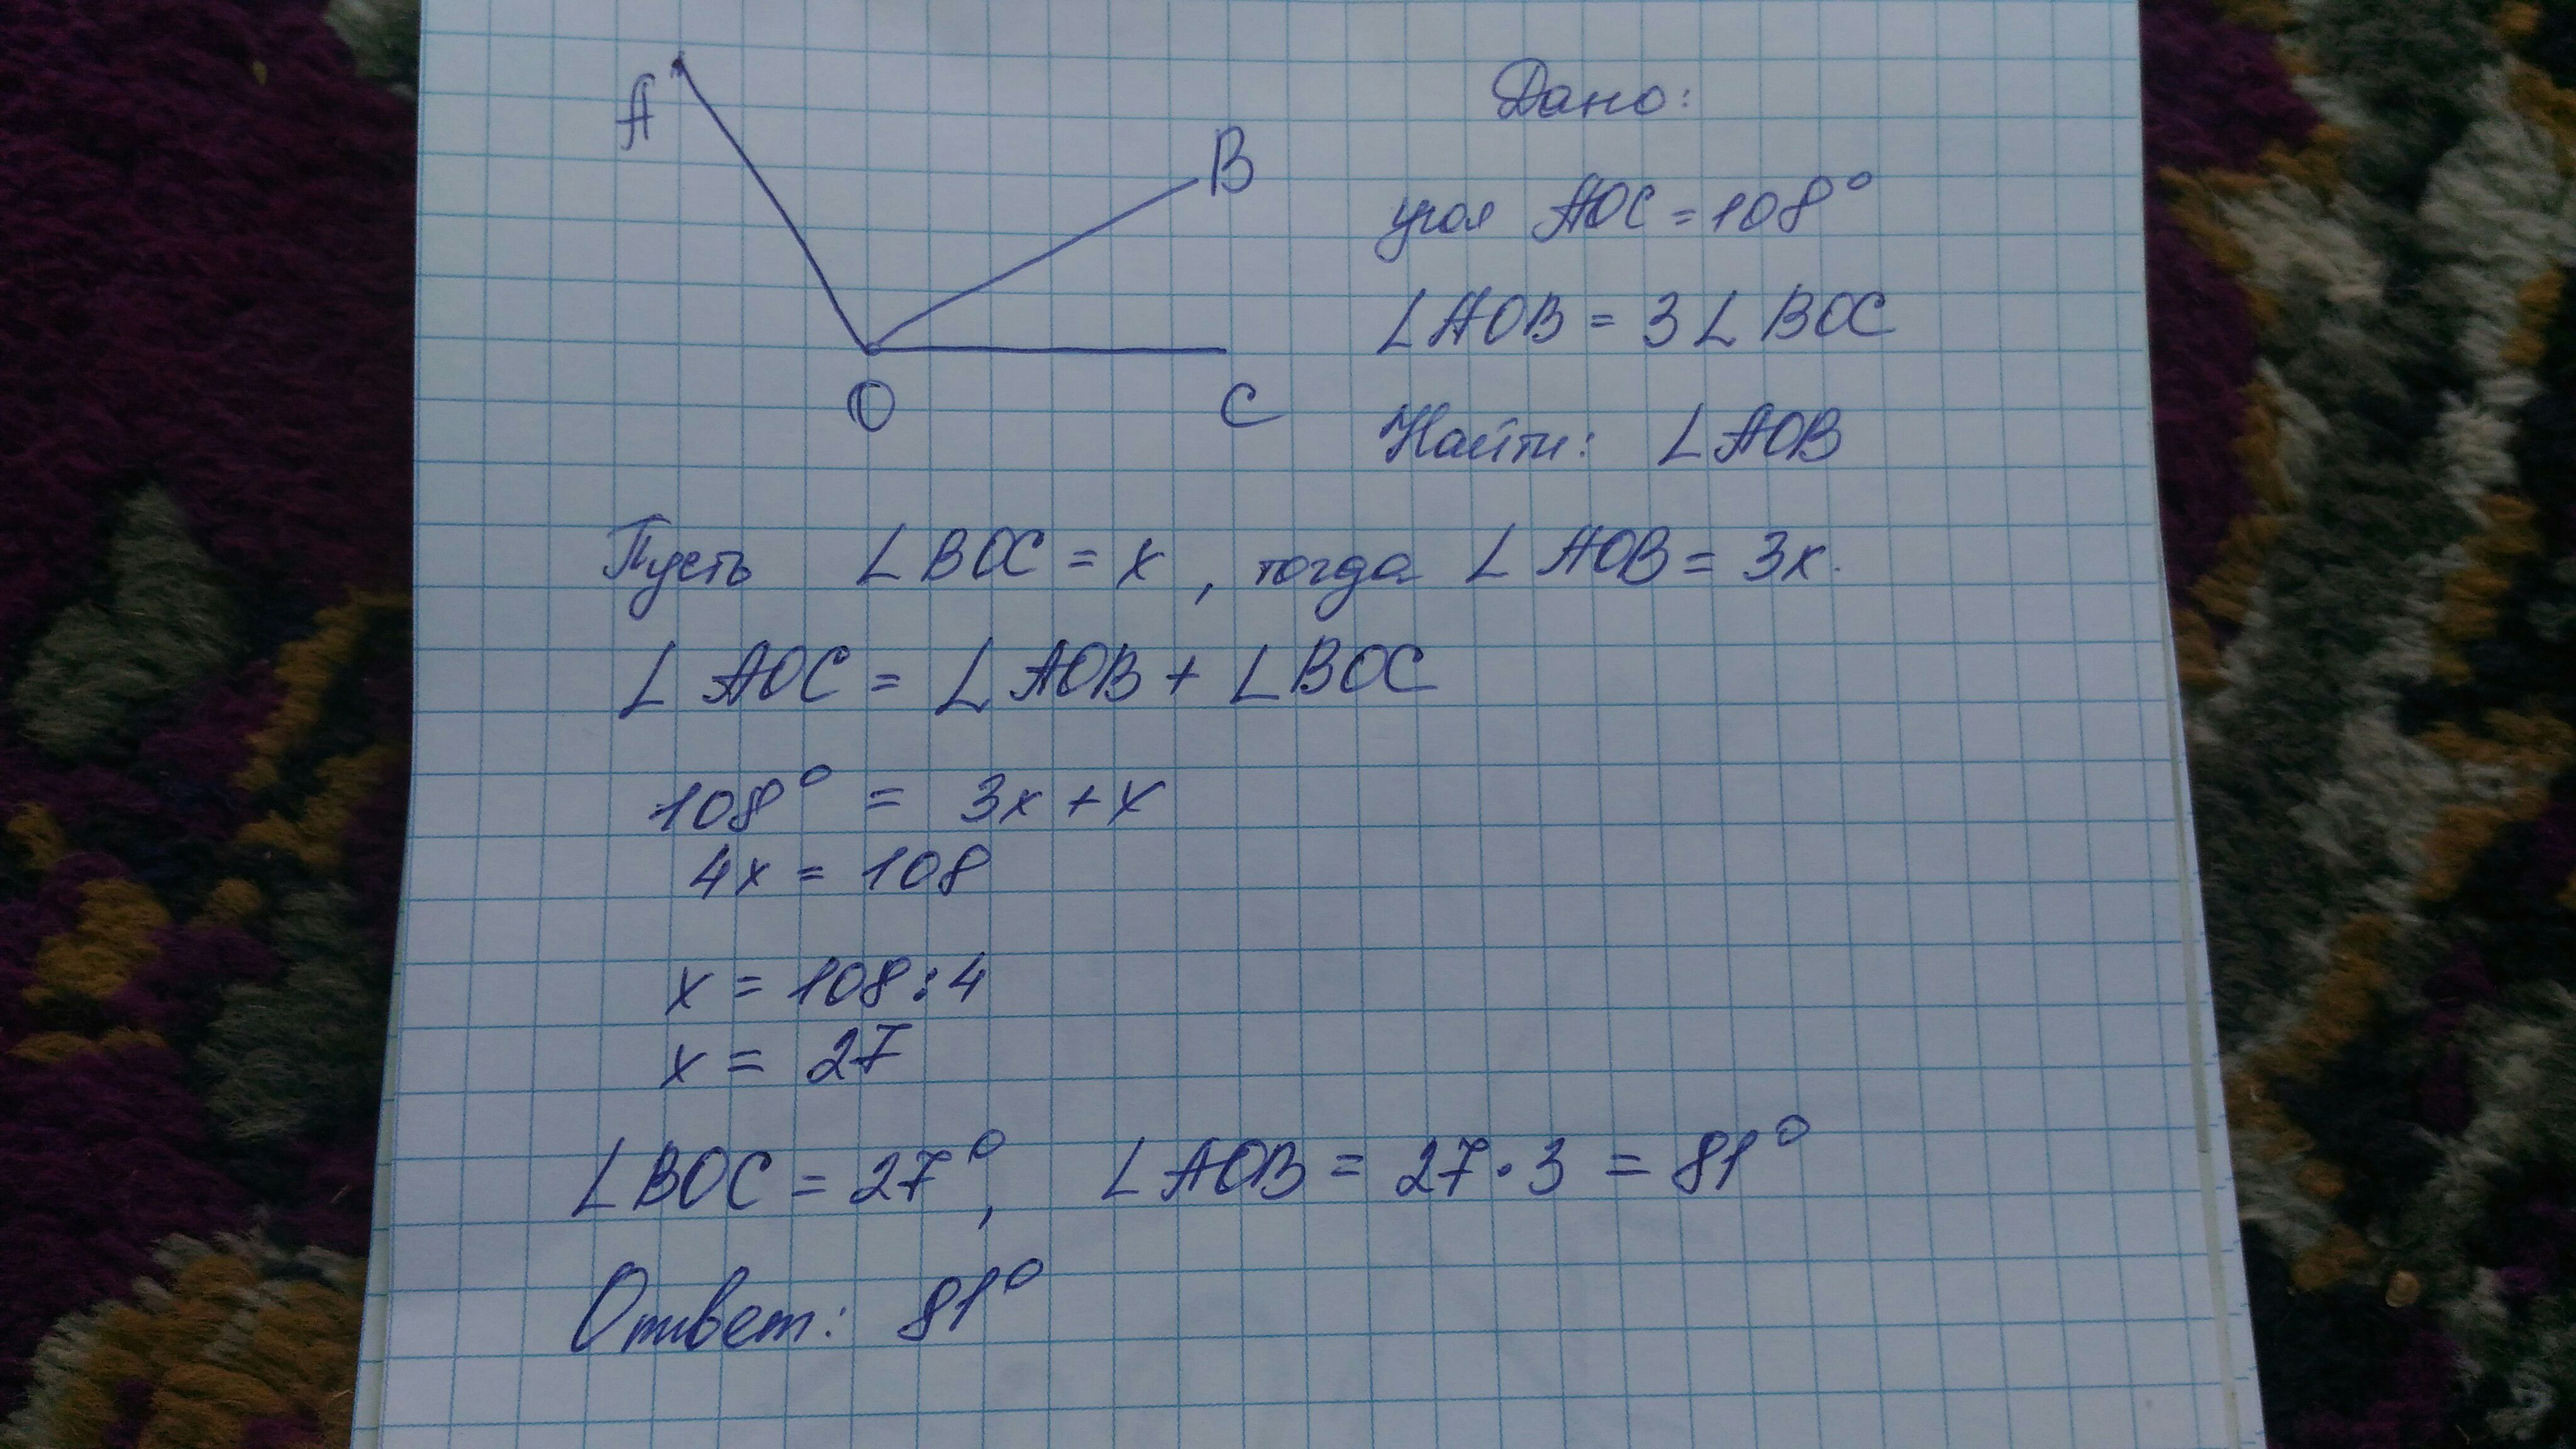 A
B
O
C
Дано:
угол AOC = 108°
∠AOB = 3∠BOC
Найти: ∠AOB
Пусть ∠BOC = x, тогда ∠AOB = 3x.
∠AOC = ∠AOB + ∠BOC
108° = 3x + x
4x = 108
x = 108:4
x = 27
∠BOC = 27°, ∠AOB = 27·3 = 81°
Ответ: 81°